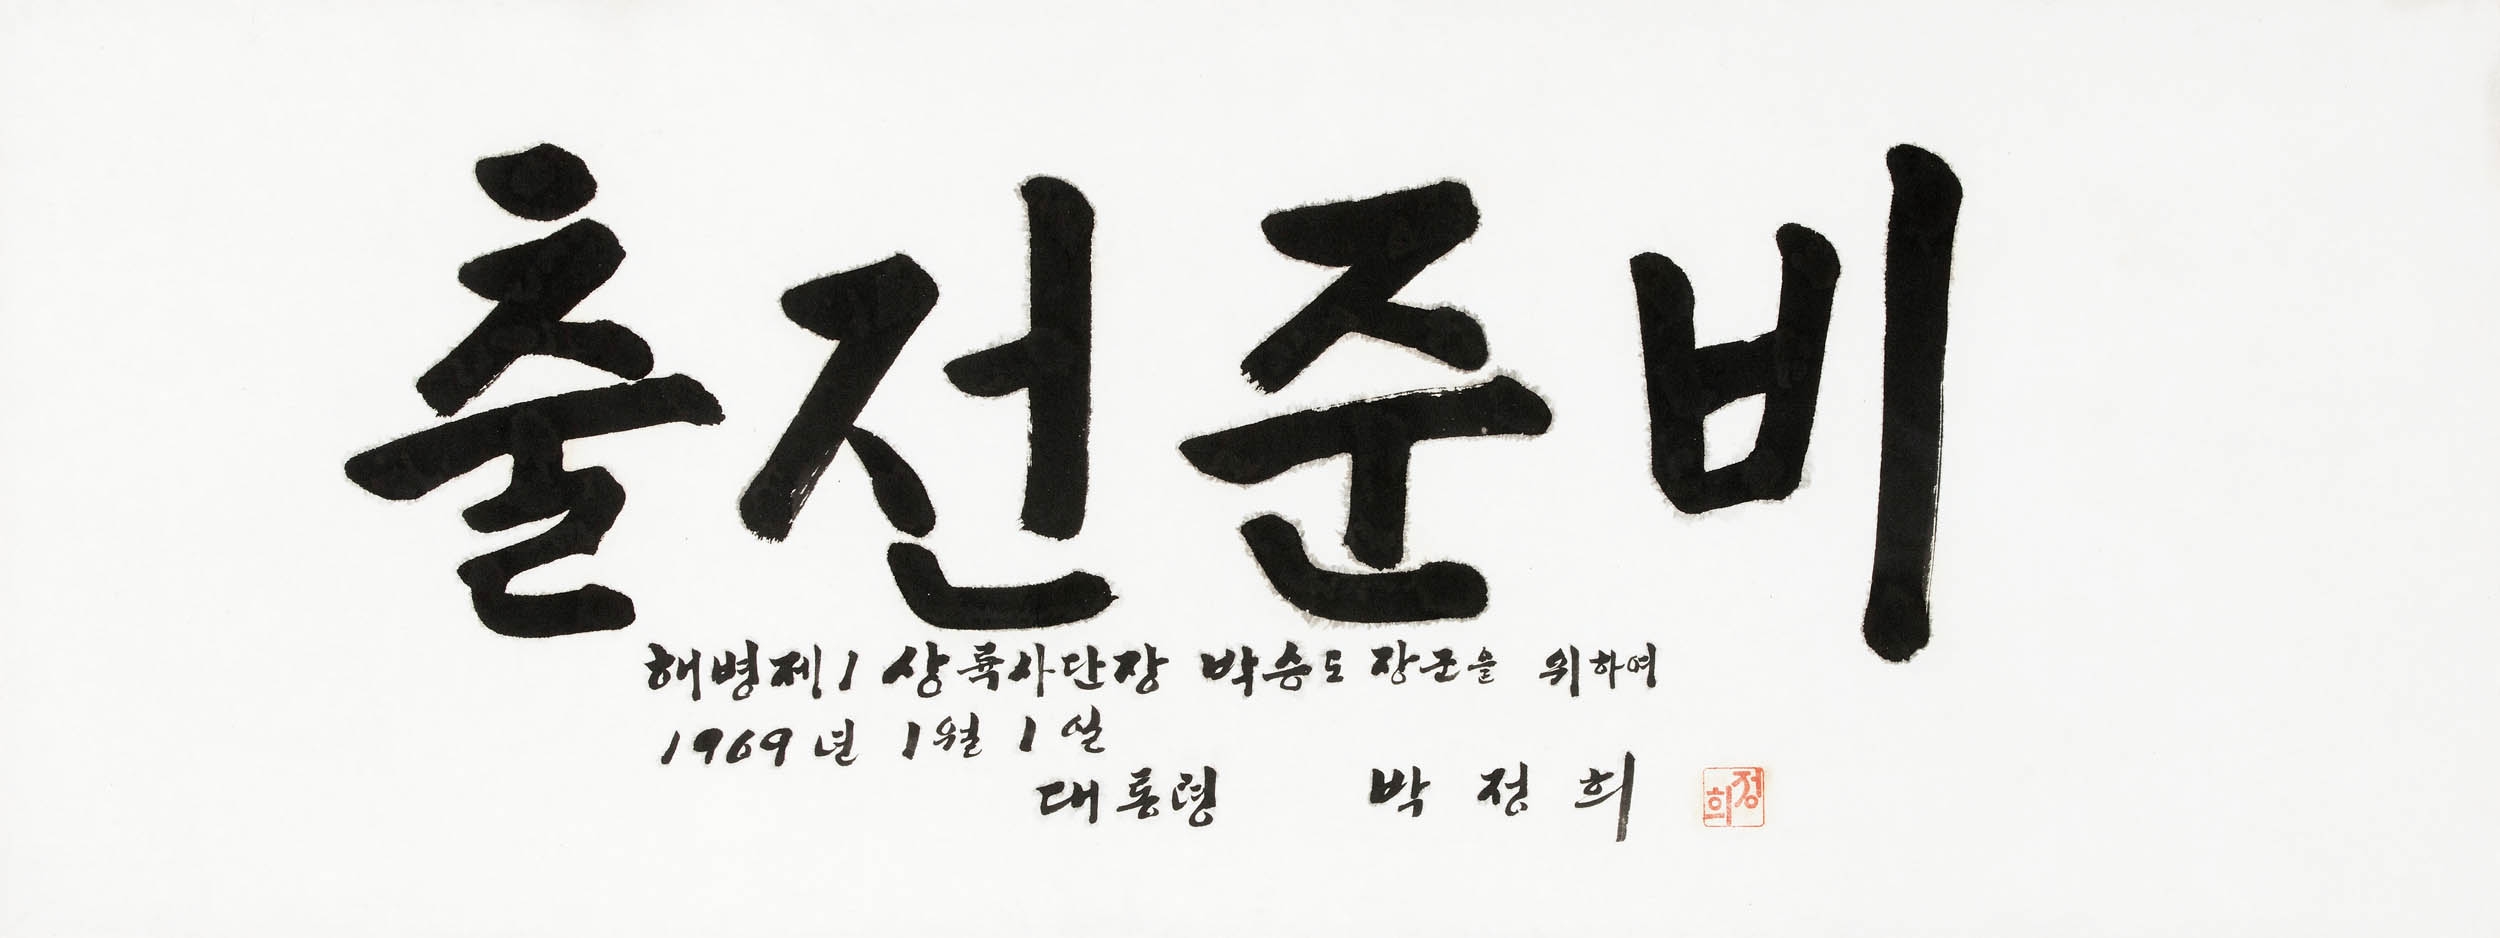 출전준비
해병제1 상륙사단장 박승도 장군을 위하여
1969년 1월 1일
대통령 박정희
정희